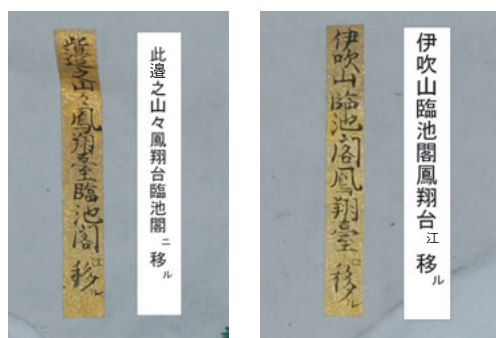 此邉之山々鳳翔臺臨池閣江移ル
此邉之山々鳳翔台臨池閣ニ移ル
伊吹山臨池閣鳳翔臺江移ル
伊吹山臨池閣鳳翔台江移ル